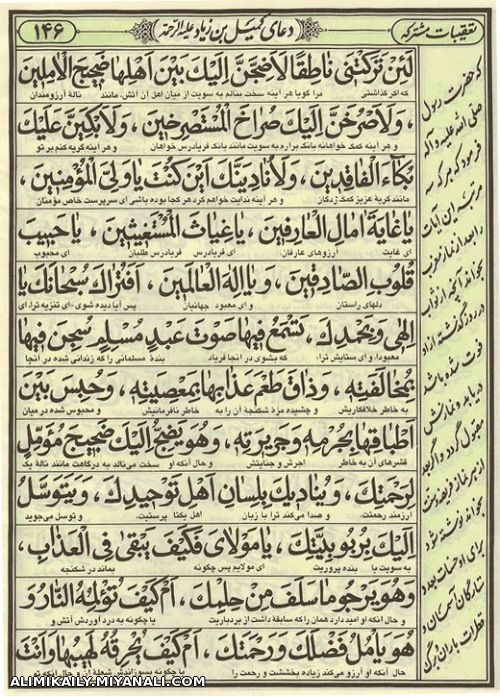 تعقیبات مشترکه
دعای کمیل بن زیاد علیه الرحمة
۱۴۶
لَئِنْ تَرَكْتَنى ناطِقًا لَاَضِجَّنَّ اِلَيْكَ بَيْنَ اَهْلِها ضَجيجَ الْامِلينَ
که اگر گذاشتی مرا گویا هر آینه سخت بنالم به سویت از میان اهل آن آتش، مانند نالهٔ آرزومندان
، وَلَاَصْرُخَنَّ اِلَيْكَ صُراخَ الْمُسْتَصْرِخينَ ، وَلَاَبْكِيَنَّ عَلَيْكَ
و هر آینه کمک خواهانه بانگ برآرم به سویت مانند بانگ فریادرس خواهان و هر آینه گریه کنم بر تو
بُكآءَ الْفاقِدينَ ، وَلَاُنادِيَنَّكَ اَيْنَ كُنْتَ ياوَلِىَّ الْمُؤْمِنينَ ،
مانند گریهٔ عزیز گم زدگان و هر آینه ندایت خواهم کرد هر کجا بوده باشی ای سرپرست خاص مؤمنان
ياغايَةَ امالِ الْعارِفينَ ، ياغِياثَ الْمُسْتَغيثينَ ، ياحَبيبَ
ای غایت آرزوهای عارفان، ای فریادرس فریادرس طلبان ای محبوب
قُلُوبِ الصّادِقينَ ، وَيااِلهَ الْعالَمينَ ، اَفَتُراكَ سُبْحانَكَ يا
دلهای راستان و ای معبود جهانیان پس آیا دیده شوی ؛ ای تنزیه ترا، ای
اِلهى وَبِحَمْدِكَ ، تَسْمَعُ فيها صَوْتَ عَبْدٍ مُسْلِمٍ سُجِنَ فيها
معبود، و ای ستایش ترا، که بشنوی در آنجا فریاد بندهٔ مسلمانی را که زندانی شده در آنجا
بِمُخالَفَتِهِ ، وَذاقَ طَعْمَ عَذابِها بِمَعْصِيَتِهِ ، وَحُبِسَ بَيْنَ
به خاطر خلافکاریش و چشیده مزهٔ شکنجهٔ آن را به خاطر نافرمانیش و محبوس شده در میان
اَطْباقِها بِجُرْمِهِ وَجَريرَتِهِ ، وَهُوَ يَضِجُّ اِلَيْكَ ضَجيجَ مُؤَمِّلٍ
قشرهای آن به خاطر جرمش و جنایتش و حال آنکه او سخت می‌نالد به درگاهت مانند نالهٔ یک
لِرَحْمَتِكَ ، وَيُناديكَ بِلِسانِ اَهْلِ تَوْحيدِكَ ، وَيَتَوَسَّلُ
آرزمند رحمتت، و صدا می‌کند ترا با زبان اهل یکتا پرستیت و توسل می‌جوید
اِلَيْكَ بِرُبُوبِيَّتِكَ ، يامَوْلاىَ فَكَيْفَ يَبْقى فِى الْعَذابِ ،
به سویت با بنده پروریت ای مولایم پس چگونه بماند در شکنجه
وَهُوَ يَرْجُو ما سَلَفَ مِنْ حِلْمِكَ ، اَمْ كَيْفَ تُؤْلِمُهُ النّارُ وَ
و حال آنکه او امید دارد همان را که سابقه داشت از بردباریت یا چگونه به درد آوردش آتش و
هُوَ يَاْمُلُ فَضْلَكَ وَرَحْمَتَكَ ، اَمْ كَيْفَ يُحْرِقُهُ لَهيبُها وَاَنْتَ
حال آنکه او آرزو می‌کند زیاده بخششت و رحمت را یا چگونه بسوزاندش
که حضرت رسول
صلی الله علیه و آله
فرمود که هر که سه
مرتبه این آیات
را بعد از نماز
بخواند آنچه از ثواب
در روز گذشته از او
فوت شده باشد
دریابد و نمازش
مقبول گردد و اگر بعد
از هر نماز فریضه و سنت
بخواند نوشته شود
برای او حسنات بعدد
ستارگان آسمان و
قطرات باران و برگ
ALIMIKAILY.MIYANALI.COM